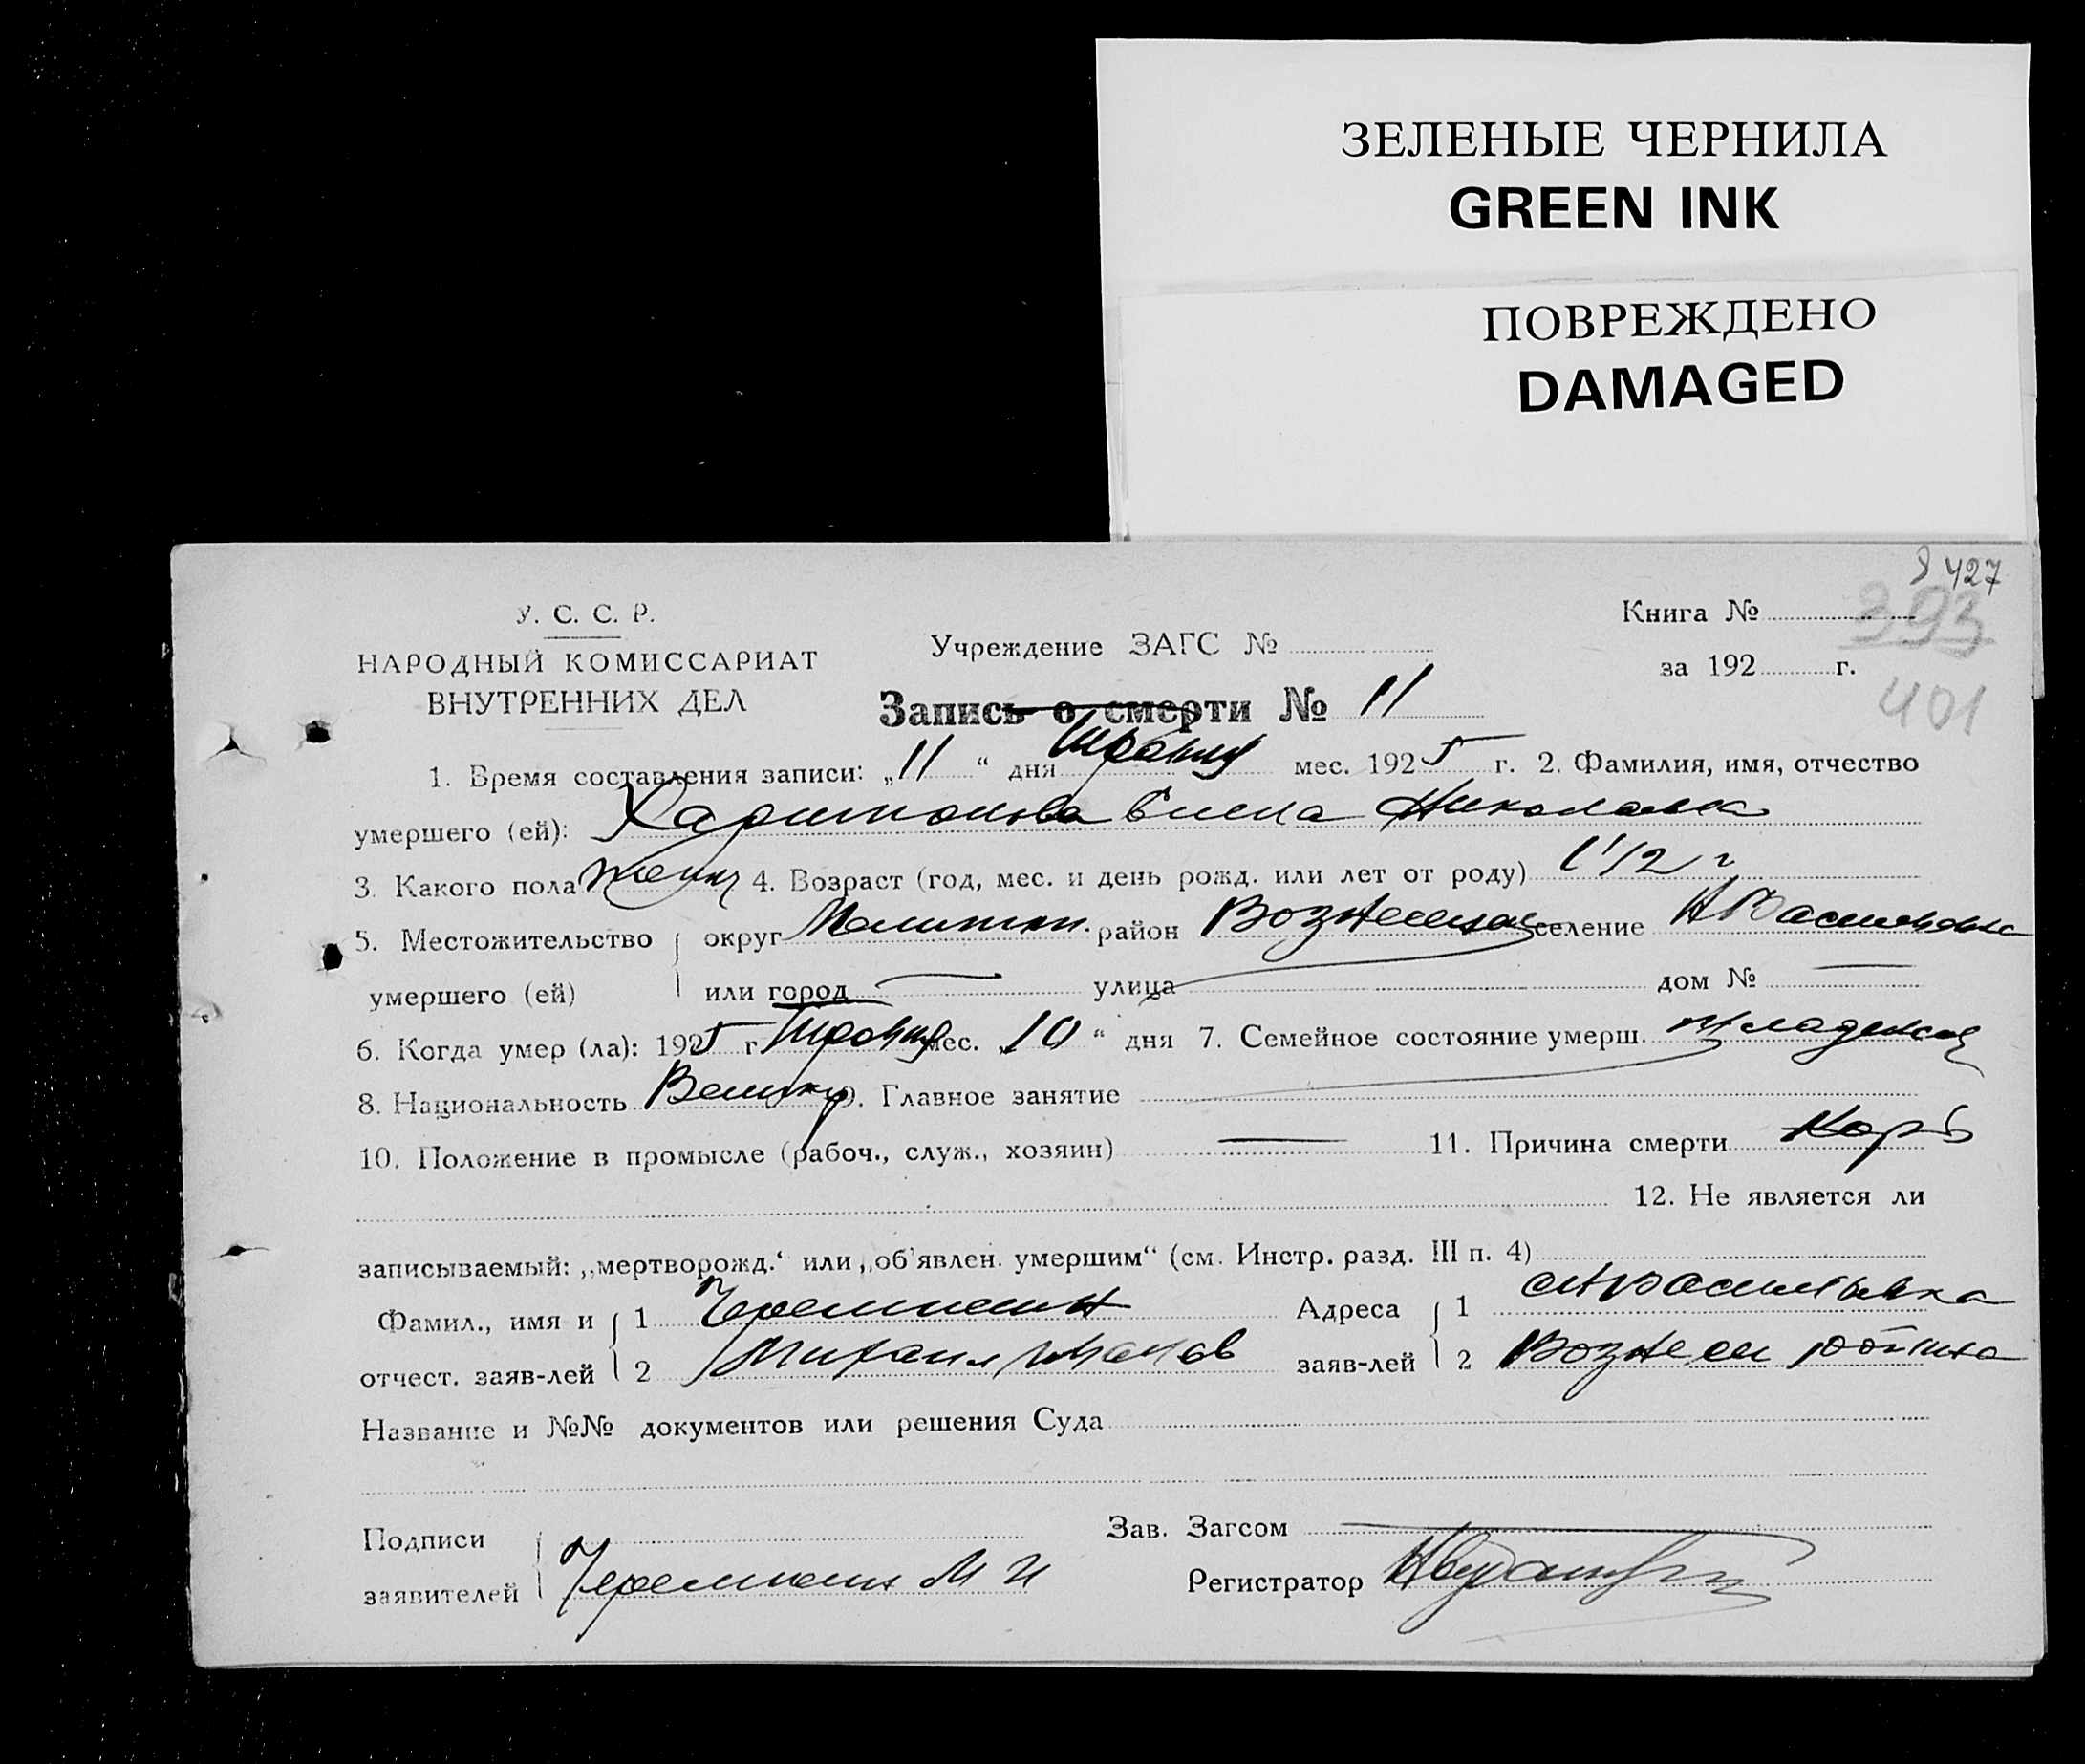 ЗЕЛЕНЫЕ ЧЕРНИЛА
GREEN INK
ПОВРЕЖДЕНО
DAMAGED
427
393
401
У. С. С. Р.
НАРОДНЫЙ КОМИССАРИАТ
ВНУТРЕННИХ ДЕЛ
Учреждение ЗАГС №
Книга №
за 192 г.
Запись о смерти № 11
1. Время составления записи: „11“ дня Травня мес. 1925 г. 2. Фамилия, имя, отчество
умершего (ей): Харитонова Елена Николаевна
3. Какого пола женск 4. Возраст (год, мес. и день рожд. или лет от роду) 1 1/2 г
5. Местожительство округ Мелитоп. район Вознесенск селение Н Васильевка
умершего (ей) или город улица дом №
6. Когда умер (ла): 1925 г. Травня мес. „10“ дня 7. Семейное состояние умерш. младенец
8. Национальность Великор 9. Главное занятие
10. Положение в промысле (рабоч., служ., хозяин) 11. Причина смерти Корь
12. Не является ли
записываемый: „мертворожд.‘ или „об’явлен. умершим“ (см. Инстр. разд. III п. 4)
Фамил., имя и 1 Адреса 1 Васильевка
отчест. заяв-лей 2 Михаил Иванов заяв-лей 2 Вознесен района
Название и №№ документов или решения Суда
Подписи Зав. Загсом
заявителей М И Регистратор